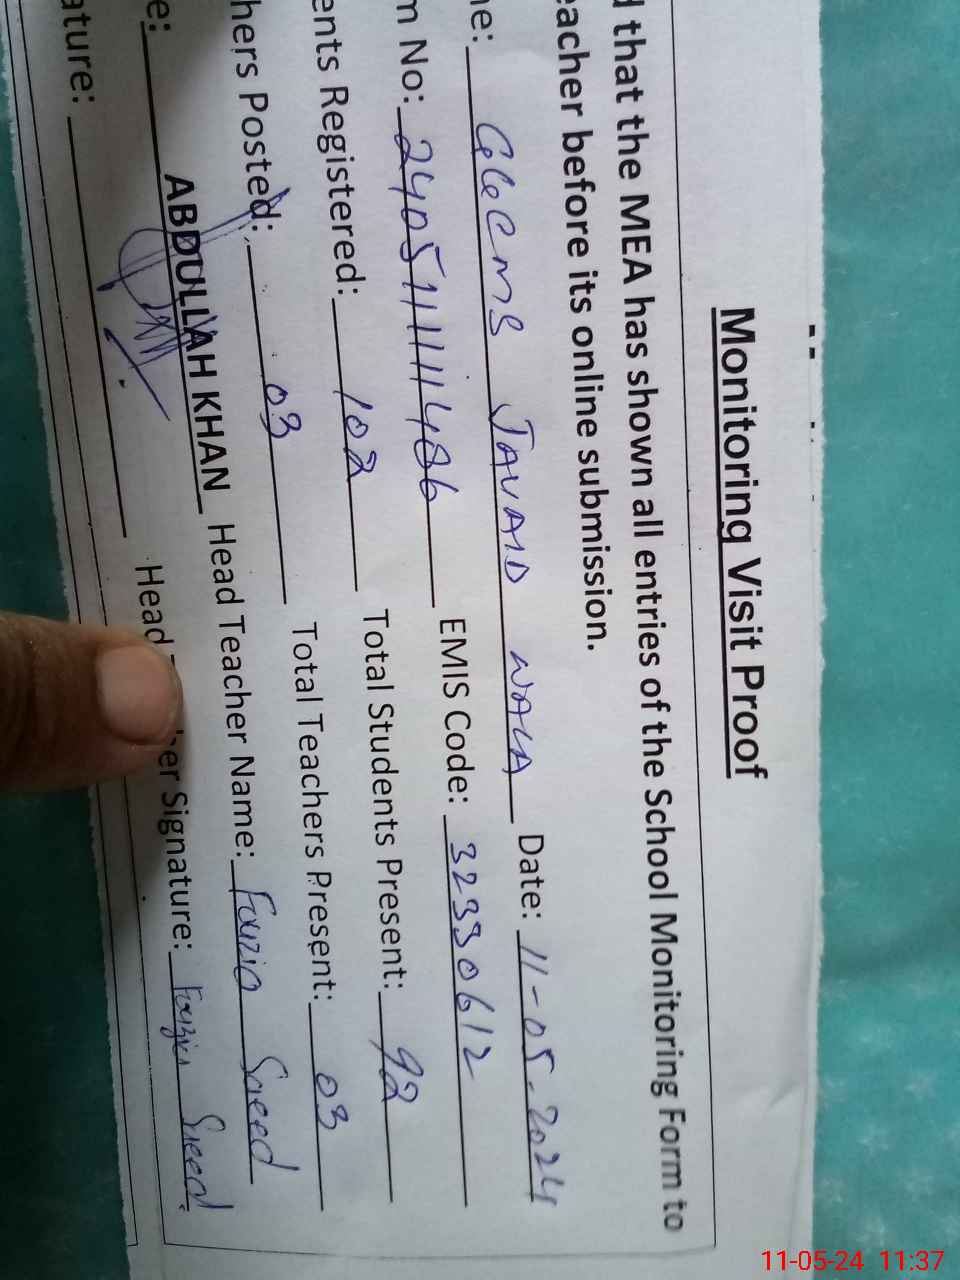 Monitoring Visit Proof
d that the MEA has shown all entries of the School Monitoring Form to
eacher before its online submission.
ne: GGCMS JAVAID WALA Date: 11-05-2024
m No: 2405111111486 EMIS Code: 32330612
ents Registered: 102 Total Students Present: 92
hers Posted: 03 Total Teachers Present: 03
e: ABDULLAH KHAN Head Teacher Name: Fouzia Saeed
ature: Head her Signature: Fouzia Saeed
11-05-24 11:37